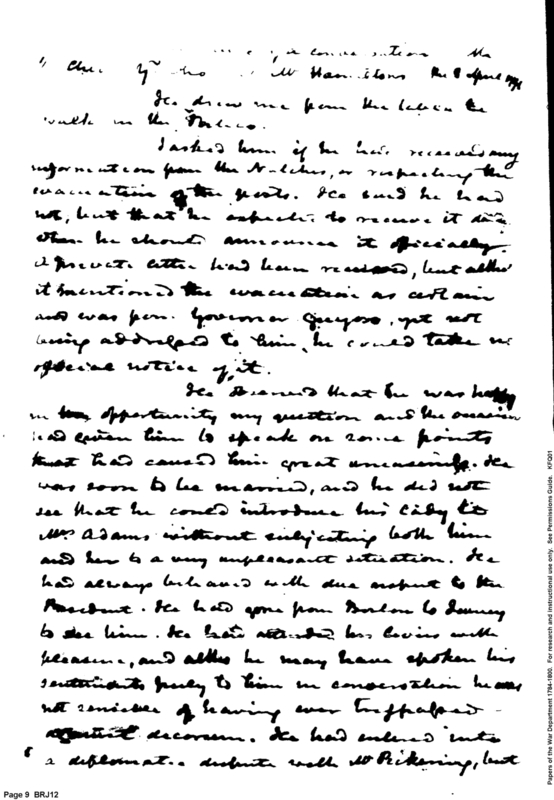 conversation the
Che Mr Hamiltons the 8 April 1798
He drew me from the table to
walk in the Portico.
I asked him if he had received any
information from the Natches, or respecting the
evacuation of the posts. He said he had
not, but that he expected to receive it
when he should announce it officially.
A private letter had been received, but altho'
it mentioned the evacuation as certain
and was from Governor Gayoso, yet not
being addressed to him, he could take no
official notice of it.
He observed that he was happy
in the opportunity my question and the occasion
had given him to speak on some points
that had caused him great uneasiness. He
was soon to be married, and he did not
see that he could introduce his Lady to
Mrs Adams without subjecting both him
and her to a very unpleasant situation. He
had always behaved with due respect to the
President. He had gone from Boston to Quincy
to see him. He had attended his levies with
pleasure, and altho he may have spoken his
sentiments freely to him in conversation he was
not sensible of having ever trespassed
against decorum. He had entered into
a diplomatic dispute with Mr Pickering, but
Page 9 BRJ12
Papers of the War Department 1784-1800. For research and instructional use only. See Permissions Guide. KFQ01